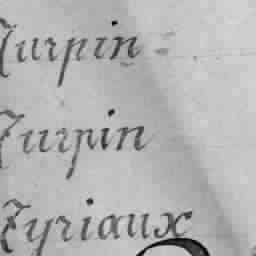 Turpin =
Turpin
Tyriaux